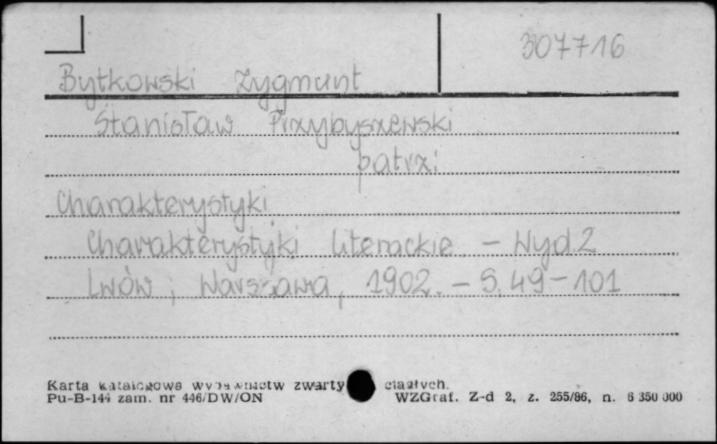 307716
Bytkowski Zygmunt
Stanisław Przybyszewski
patrz:
Charakterystyki
Charakterystyki literackie. - Wyd. 2
Lwów ; Warszawa, 1902. - S. 49-101
Karta katalogowa wydawnictw zwartych ciągłych.
Pu-B-144 zam. nr 446/DW/ON WZGraf. Z-d 2, z. 255/86, n. 6 350 000